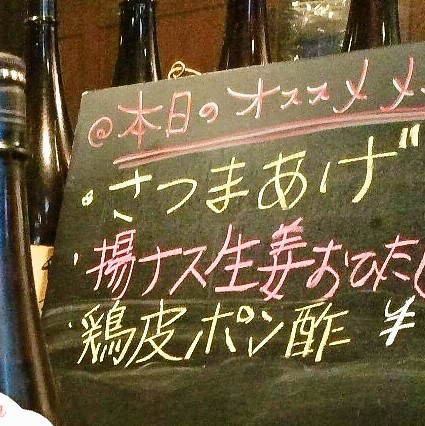 ◎本日のオススメメ
・さつまあげ
・揚ナス生姜おひたし
・鶏皮ポン酢 ¥